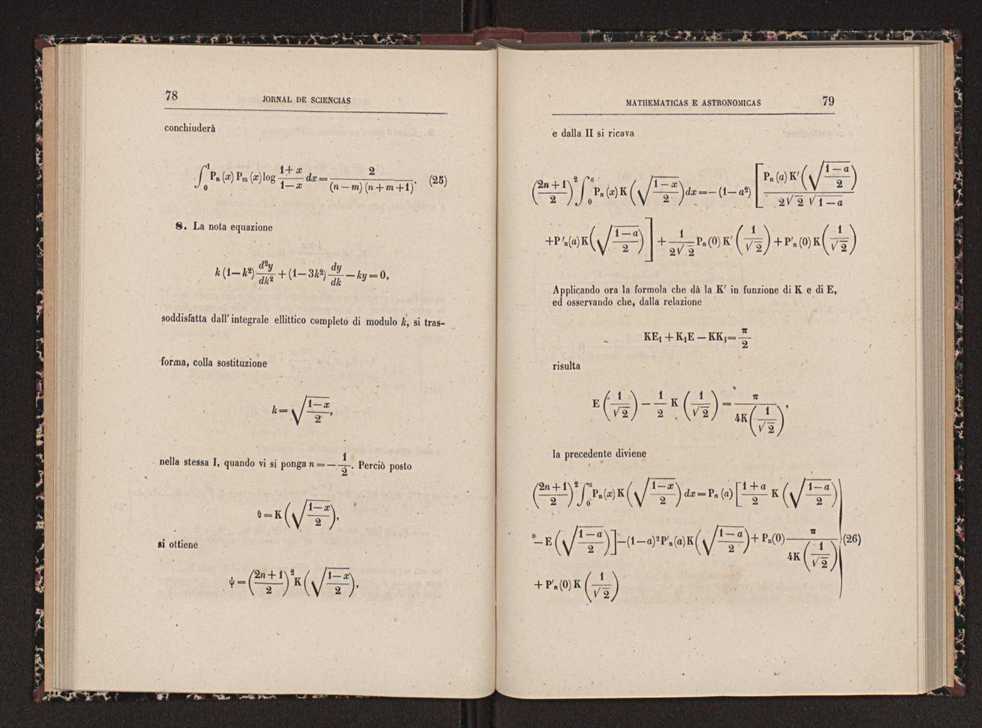 78 JORNAL DE SCIENCIAS
conchiuderà
∫₀¹ Pₙ(x) Pₘ(x) log (1+x)/(1−x) dx = 2/((n−m)(n+m+1)). (25)
8. La nota equazione
k(1−k²) d²y/dk² + (1−3k²) dy/dk − ky = 0,
soddisfatta dall'integrale ellittico completo di modulo k, si tras-
forma, colla sostituzione
k = √((1−x)/2),
nella stessa I, quando vi si ponga n = −1/2. Perciò posto
θ = K(√((1−x)/2)),
si ottiene
ψ = ((2n+1)/2)² K(√((1−x)/2)),
MATHEMATICAS E ASTRONOMICAS 79
e dalla II si ricava
((2n+1)/2)² ∫₀ᵃ Pₙ(x) K(√((1−x)/2)) dx = −(1−a²) [ Pₙ(a) K′(√((1−a)/2)) / (2√2 √(1−a))
+ P′ₙ(a) K(√((1−a)/2)) ] + 1/(2√2) Pₙ(0) K′(1/√2) + P′ₙ(0) K(1/√2)
Applicando ora la formola che dà la K′ in funzione di K e di E,
ed osservando che, dalla relazione
KE₁ + K₁E − KK₁ = π/2
risulta
E(1/√2) − 1/2 K(1/√2) = π/(4K(1/√2)),
la precedente diviene
((2n+1)/2)² ∫₀ᵃ Pₙ(x) K(√((1−x)/2)) dx = Pₙ(a) [ (1+a)/2 K(√((1−a)/2))
− E(√((1−a)/2)) ] − (1−a)² P′ₙ(a) K(√((1−a)/2)) + Pₙ(0) π/(4K(1/√2)) (26)
+ P′ₙ(0) K(1/√2)